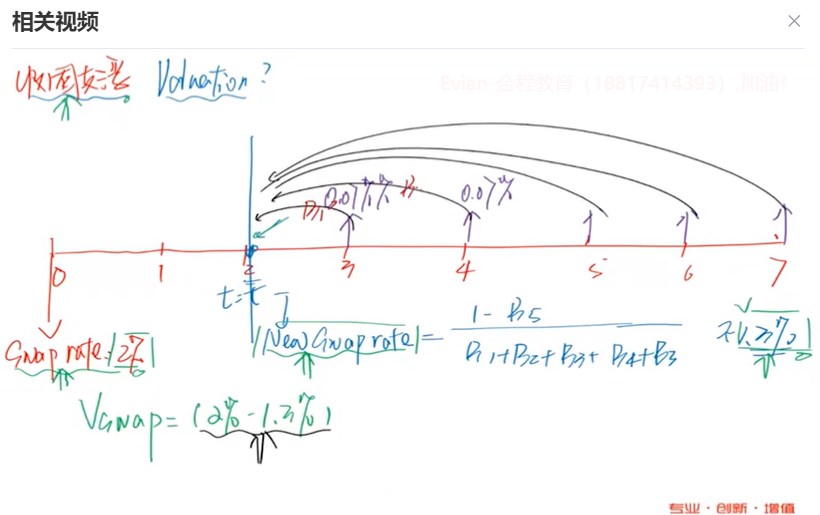 相关视频
收固支浮 Valuation?
Evian 金程教育（18817414393）,加油!
0.07% 0.07%
B1 B2
0 1 2 3 4 5 6 7
t=t
Swap rate: 2%
New Swap rate = 1 - B5
B1+B2+B3+B4+B5
1.3%
Vswap = (2% - 1.3%)
专业·创新·增值